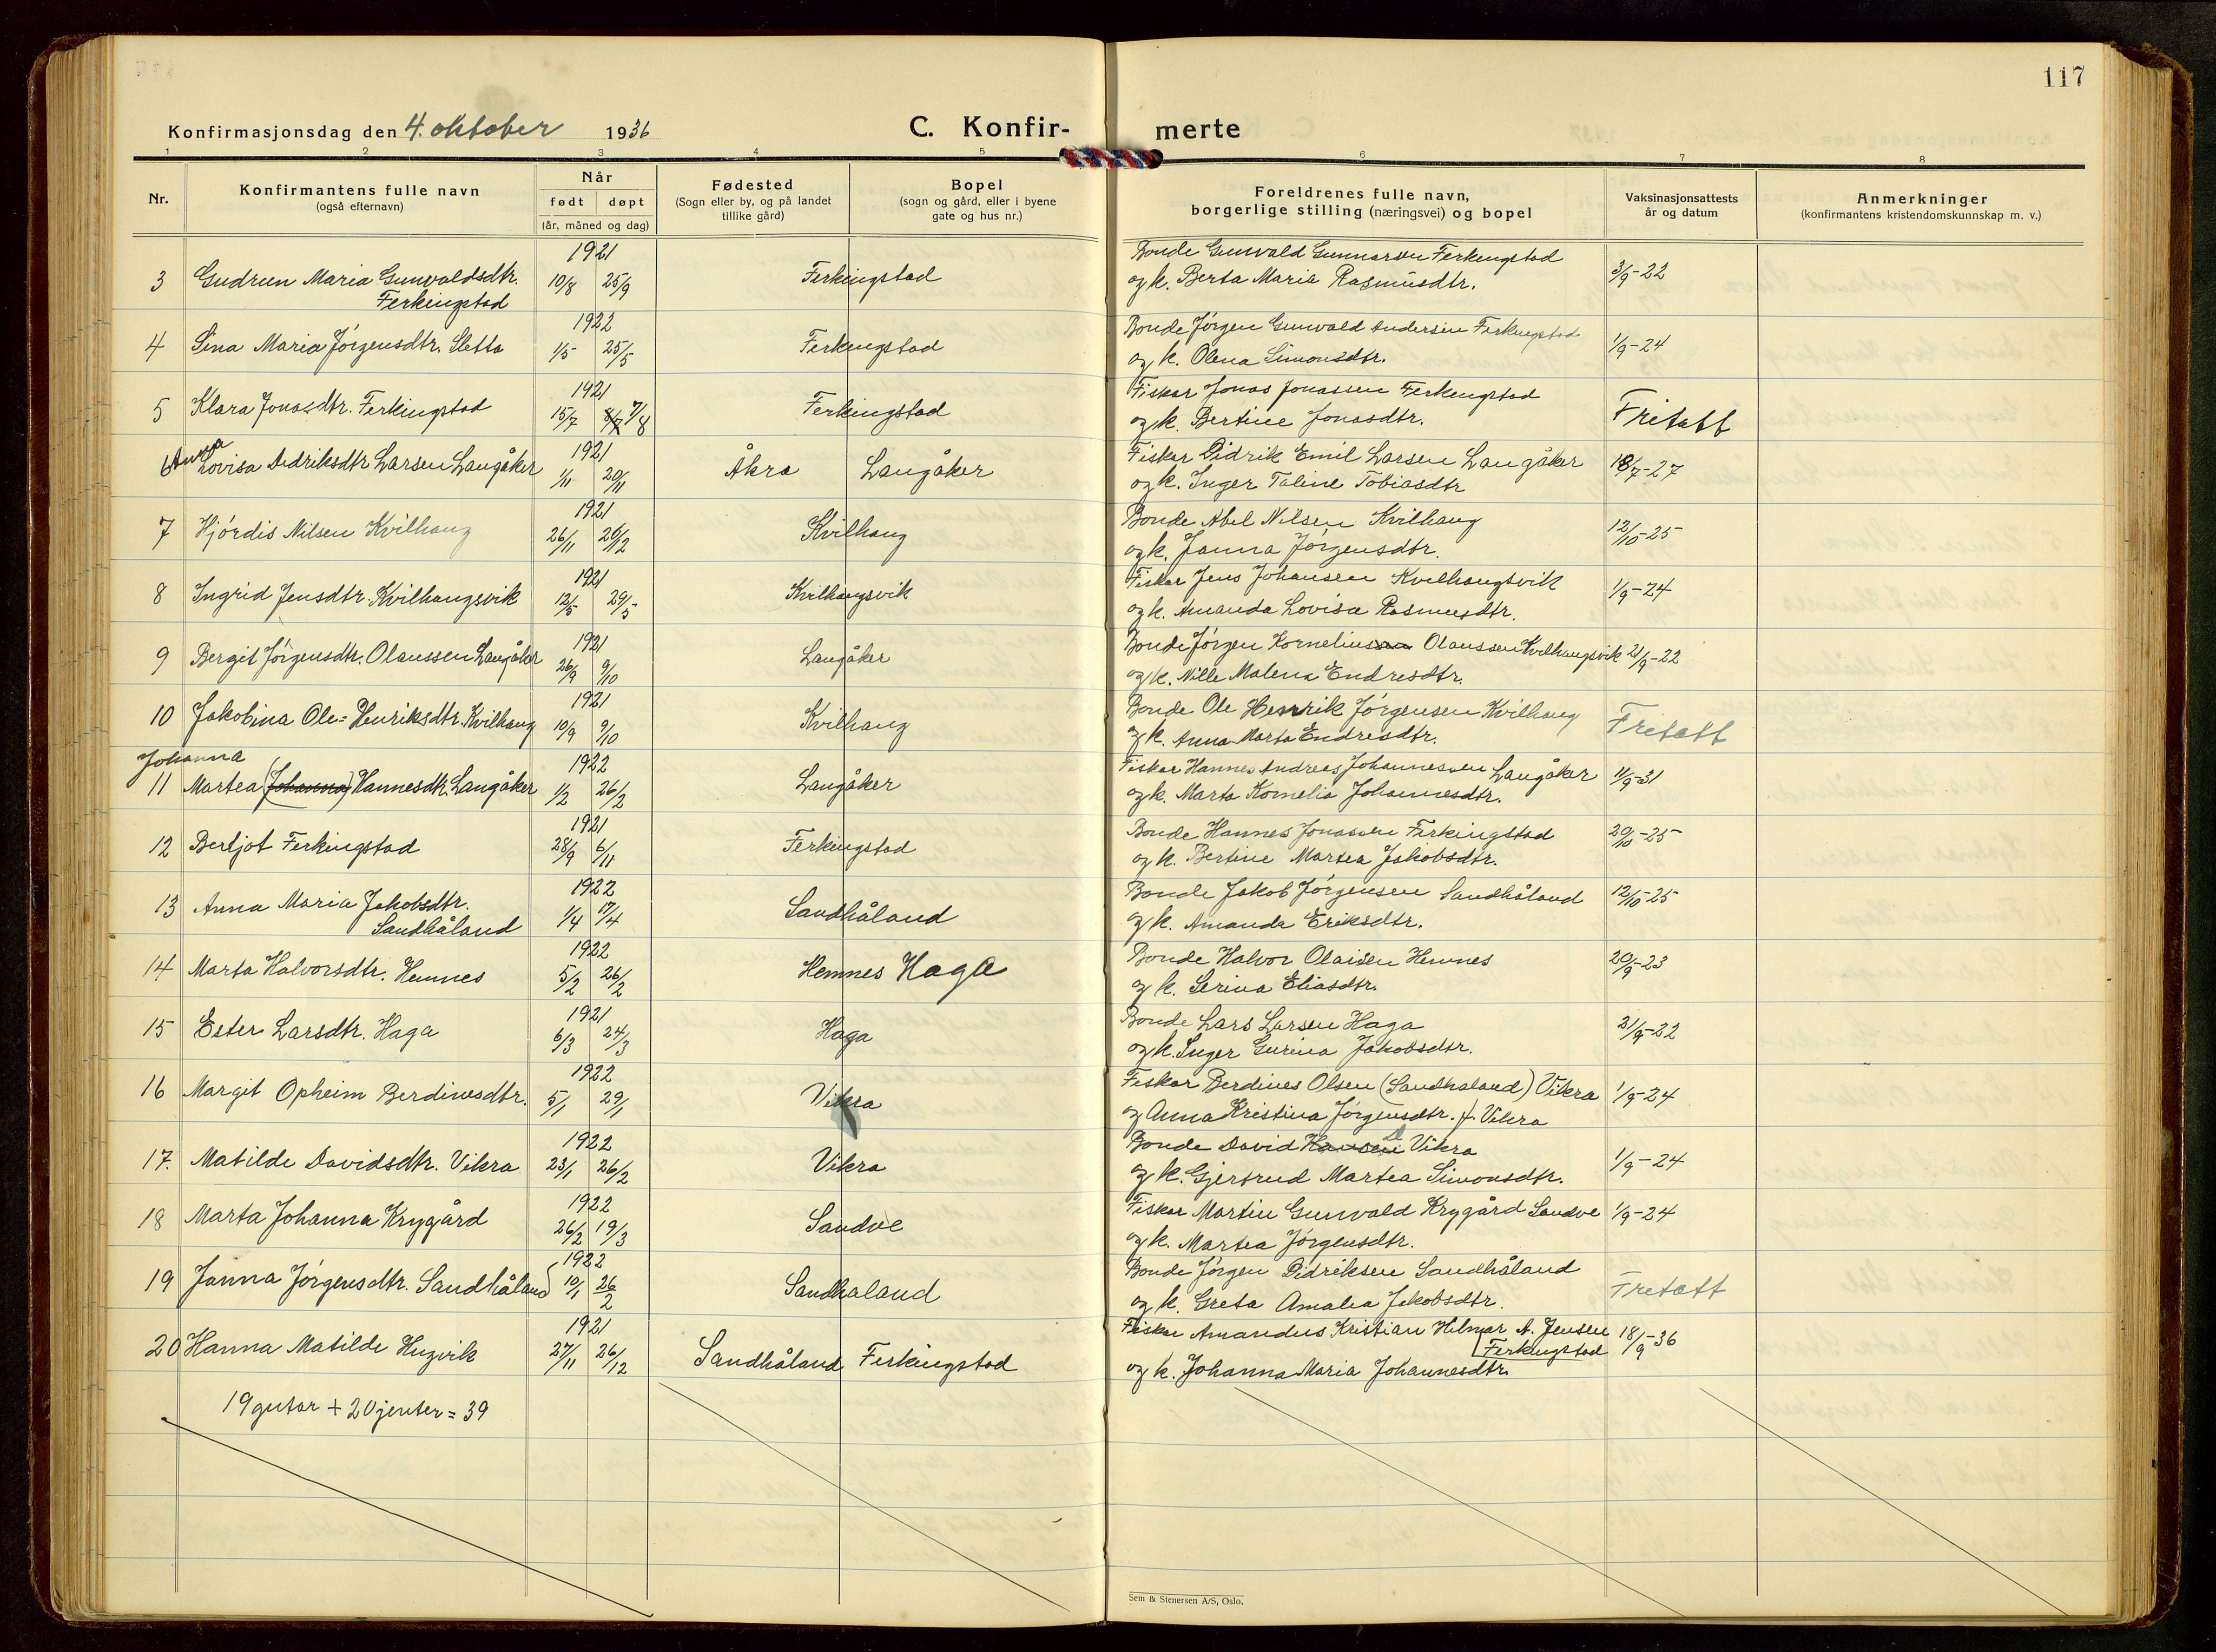 117
Konfirmasjonsdag den 4. oktober 1936 C. Konfir- merte
1 2 3 4 5 6 7 8
Nr. Konfirmantens fulle navn (også efternavn) Når født døpt (år, måned og dag) Fødested (Sogn eller by, og på landet tillike gård) Bopel (sogn og gård, eller i byene gate og hus nr.) Foreldrenes fulle navn, borgerlige stilling (næringsvei) og bopel Vaksinasjonsattests år og datum Anmerkninger (konfirmantens kristendomskunnskap m. v.)
1921 Bonde Gunvald Gunnarsen Ferkingstad
3 Gudrun Maria Gunvaldsdtr. 10/8 25/9 Ferkingstad og k. Berta Maria Rasmusdtr. 3/9-22
Ferkingstad
1922 Bonde Jórgen Gunvald Andersen Ferkingstad
4 Sina Maria Jórgensdtr. Sletta 1/5 25/5 Ferkingstad og k. Olena Simonsdtr. 1/9-24
1921 Fiskar Jonas Jonassen Ferkingstad
5 Klara Jonasdtr. Ferkingstad 15/7 7/8 Ferkingstad og k. Bertine Jonasdtr. Fritatt
Anna 1921 Fiskar Didrik Emil Larsen Langåker
6 Lovisa Didriksdtr Larsen Langåker 1/11 20/11 Åkra Langåker og k. Inger Taline Tobiasdtr 18/7-27
1921 Bonde Abel Nilsen Kvilhaug
7 Hjórdis Nilsen Kvilhaug 26/11 26/12 Kvilhaug og k. Janna Jórgensdtr. 12/10-25
1921 Fiskar Jens Johansen Kvilhaugsvik
8 Ingrid Jensdtr. Kvilhaugsvik 12/5 29/5 Kvilhaugsvik og k. Amanda Lovisa Rasmusdtr. 1/9-24
1921 Bonde Jórgen Kornelius Olaussen Kvilhaugsvik 21/9-22
9 Bergit Jórgensdtr. Olaussen Langåker 26/9 9/10 Langåker og k. Nille Malena Endresdtr.
1921 Bonde Ole Henrik Jórgensen Kvilhaug
10 Jakobina Ole-Henriksdtr. Kvilhaug 10/9 9/10 Kvilhaug og k. Anna Marta Endresdtr. Fritatt
Johanna 1922 Fiskar Hannes Andreas Johannessen Langåker 11/9-31
11 Martea (Johanna) Hannesdtr. Langåker 1/2 26/2 Langåker og k. Marta Kornelia Johannesdtr.
1921 Bonde Hannes Jonassen Ferkingstad 20/10-25
12 Berljot Ferkingstad 28/9 6/11 Ferkingstad og k. Bertine Martea Jakobsdtr.
1922 Bonde Jakob Jórgensen Sandhåland 12/10-25
13 Anna Maria Jakobsdtr. 1/4 17/4 Sandhåland og k. Amanda Eriksdtr.
Sandhåland
1922 Bonde Halvor Olaisen Hemnes 20/9-23
14 Marta Halvorsdtr. Hemnes 5/2 26/2 Hemnes Haga og k. Serina Eliasdtr.
1921 Bonde Lars Larsen Haga 21/9-22
15 Ester Larsdtr. Haga 6/3 24/3 Haga og k. Inger Gurina Jakobsdtr.
1922 Fiskar Berdines Olsen (Sandhaland) Vikra 1/9-24
16 Margit Opheim Berdinesdtr. 5/1 29/1 Vikra og Anna Kristina Jórgensdtr. f. Vikra
1922 Bonde David Hansen Vikra
17. Matilde Davidsdtr. Vikra 23/1 26/2 Vikra og k. Gjertrud Martea Simonsdtr. 1/9-24
1922 Fiskar Martin Gunvald Krygård Sandve 1/9-24
18 Marta Johanna Krygård 26/2 19/3 Sandve og k. Martea Jórgensdtr.
1922 Bonde Jórgen Didriksen Sandhåland
19 Janna Jórgensdtr. Sandhåland 10/1 26/2 Sandhaland og k. Greta Amalia Jakobsdtr. Fritatt
1921 Fiskar Amandus Kristian Hilmar A. Jensen 18/9-36
Ferkingstad
20 Hanna Matilde Huzvik 27/11 26/12 Sandhåland Ferkingstad og k. Johanna Maria Johannesdtr.
19 gutar + 20 jenter = 39
Sem & Stenersen A/S, Oslo.